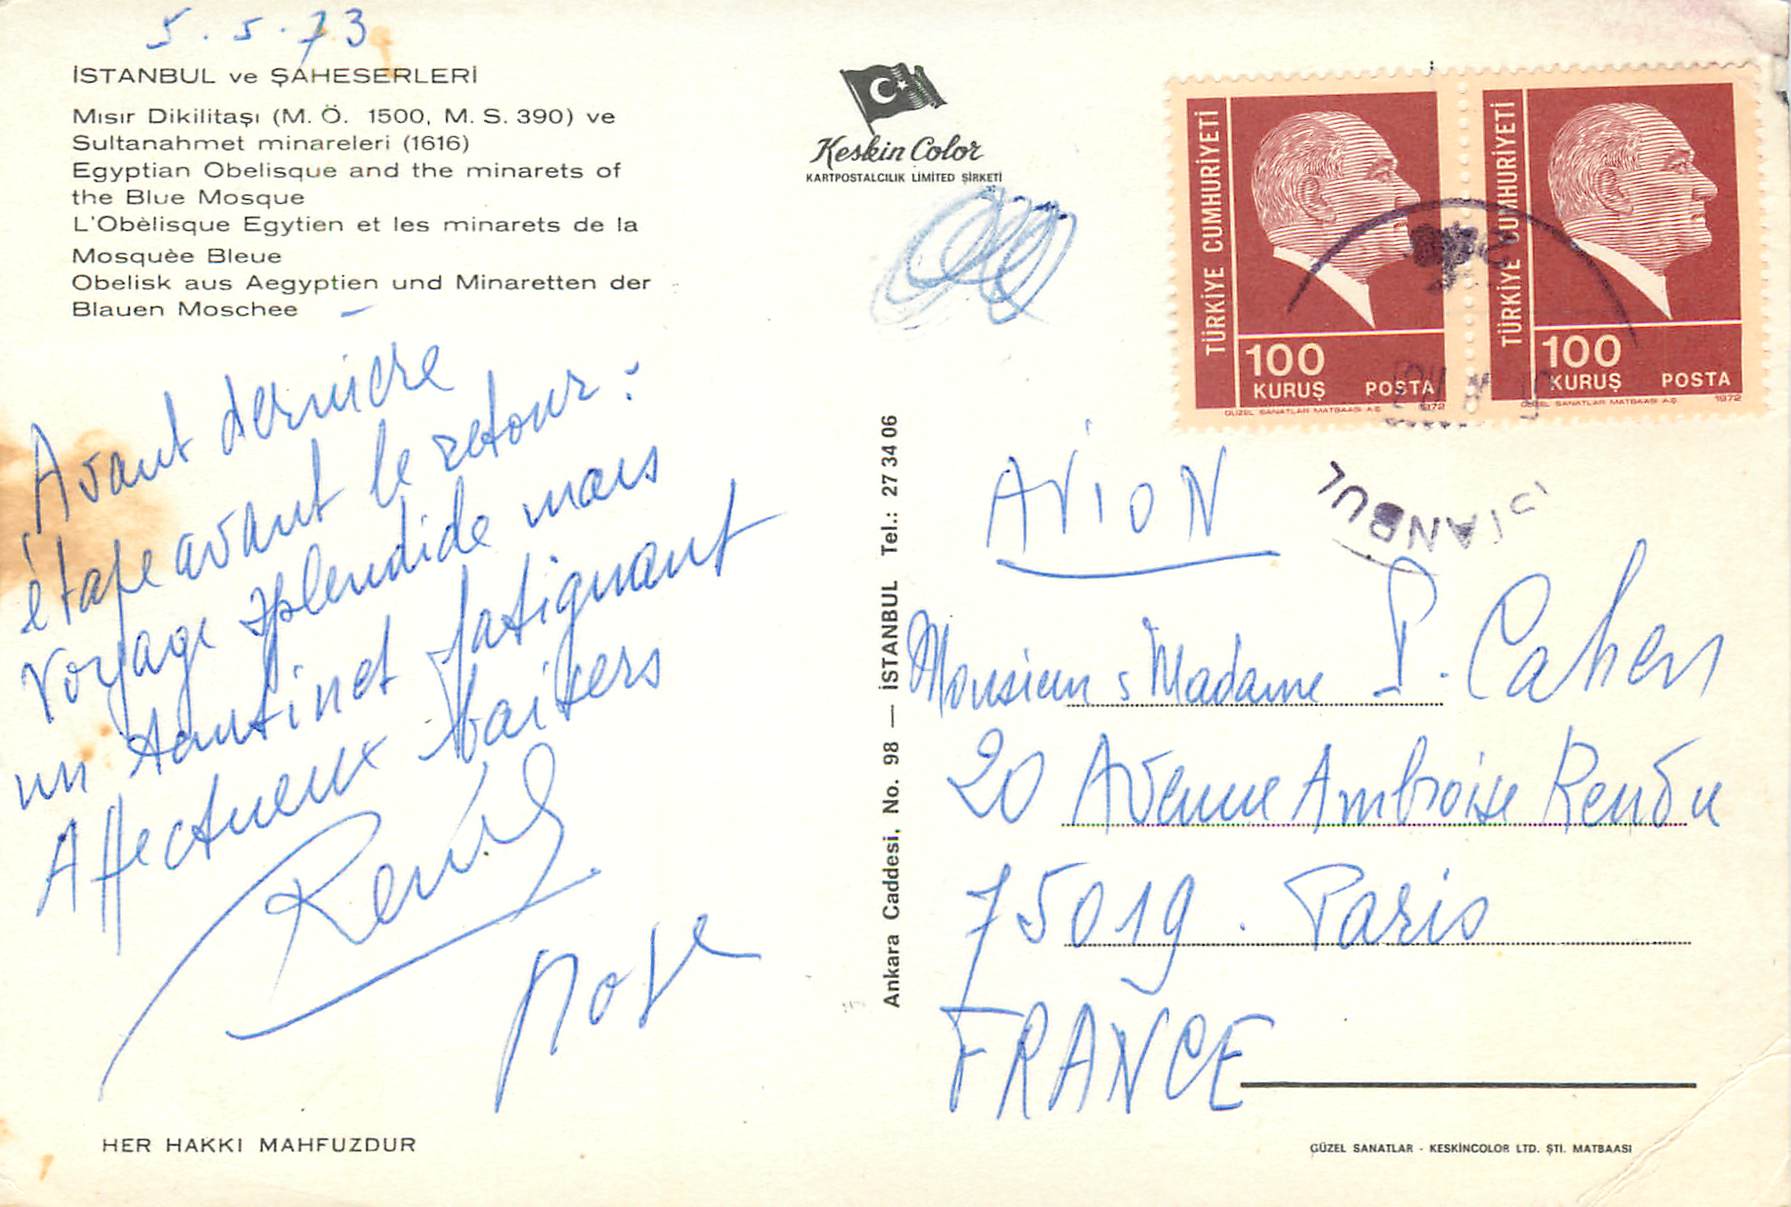 5.5.73
İSTANBUL ve ŞAHESERLERİ
Mısır Dikilitaşı (M. Ö. 1500, M. S. 390) ve
Sultanahmet minareleri (1616)
Egyptian Obelisque and the minarets of
the Blue Mosque
L'Obèlisque Egytien et les minarets de la
Mosquèe Bleue
Obelisk aus Aegyptien und Minaretten der
Blauen Moschee
Avant dernière
étape avant le retour :
Voyage splendide mais
un tantinet fatiguant
Affectueux baisers
HER HAKKI MAHFUZDUR
Keskin Color
KARTPOSTALCILIK LİMİTED ŞİRKETİ
Ankara Caddesi, No. 98 — İSTANBUL Tel.: 27 34 06
TÜRKİYE CUMHURİYETİ
100
KURUŞ POSTA
GÜZEL SANATLAR MATBAASI A.Ş. 1972
TÜRKİYE CUMHURİYETİ
100
KURUŞ POSTA
GÜZEL SANATLAR MATBAASI A.Ş. 1972
İSTANBUL
AVION
Monsieur & Madame P. Cahen
20 Avenue Ambroise Rendu
75019. Paris
FRANCE
GÜZEL SANATLAR - KESKİNCOLOR LTD. ŞTİ. MATBAASI